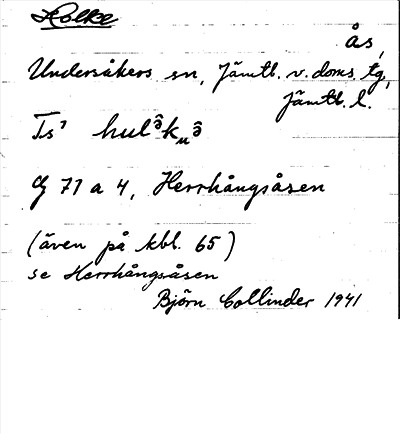 Holke
ås,
Undersåkers sn, Jämtl. v. doms. tg,
Jämtl. l.
Ts
G 71 a 4, Herrhångsåsen
(även på kbl. 65)
se Herrhångsåsen
Björn Collinder 1941